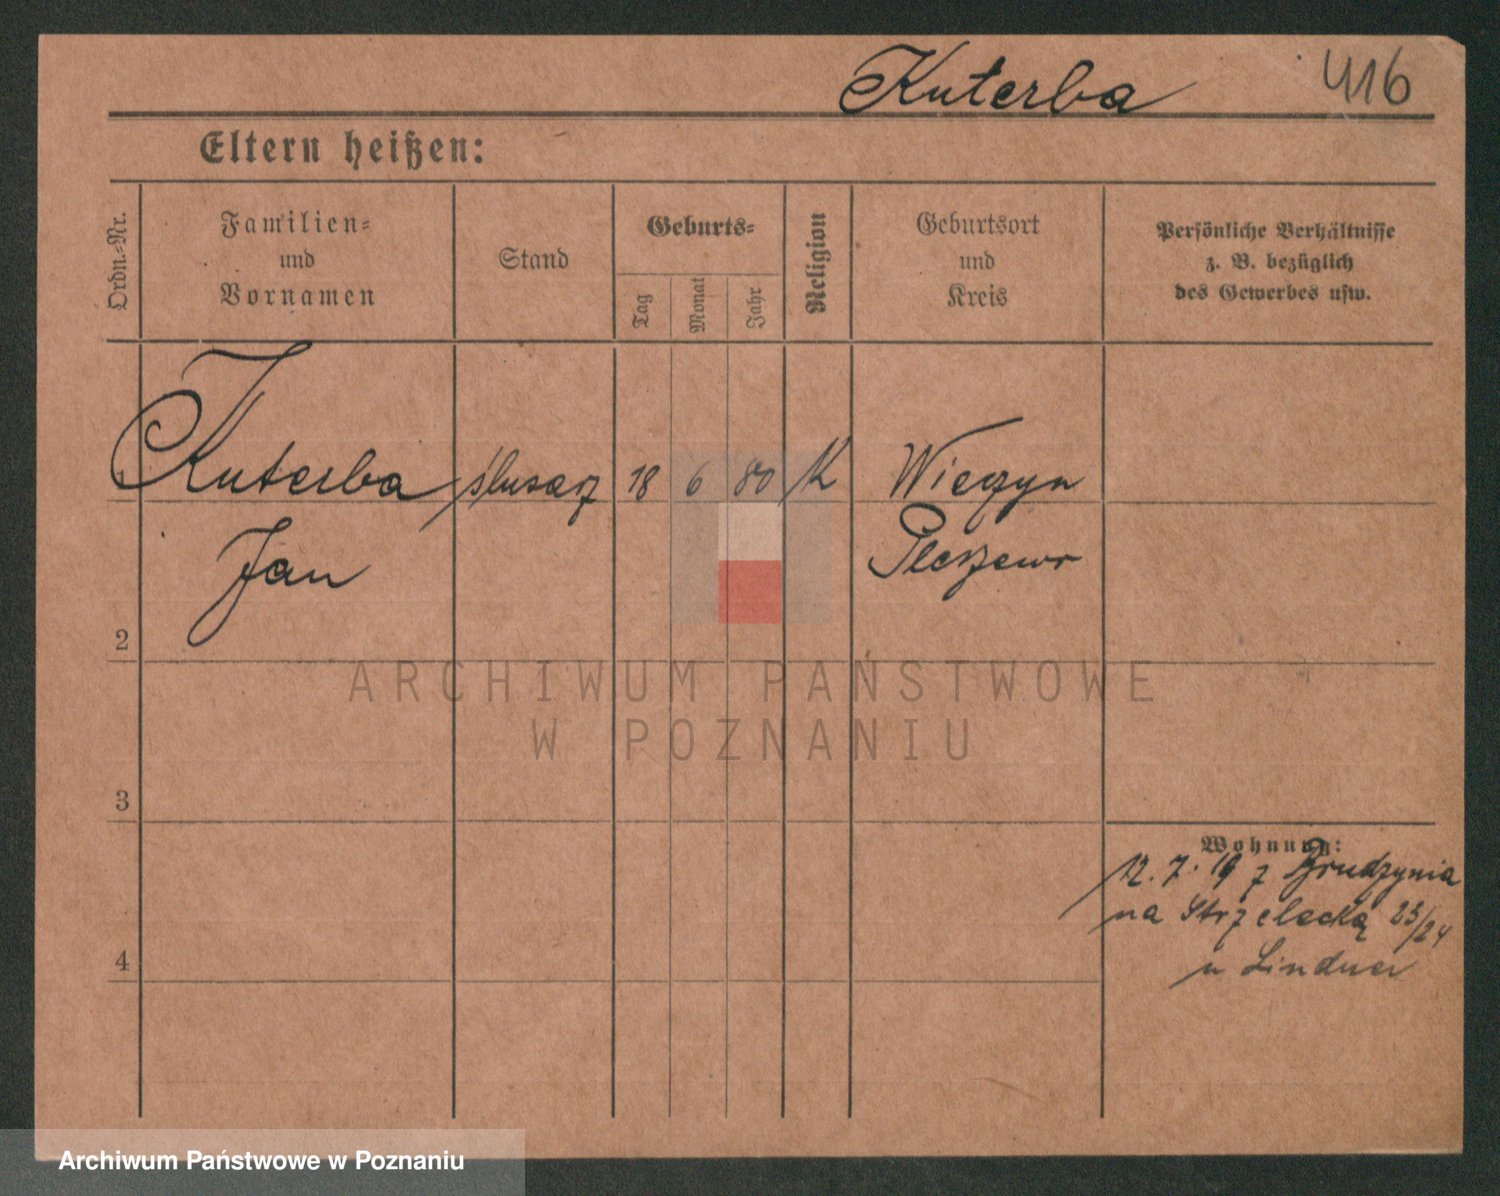 Kuterba 416
Eltern heißen:
Ordn.-Nr.
Familien-
und
Vornamen
Stand
Geburts-
Tag
Monat
Jahr
Religion
Geburtsort
und
Kreis
Persönliche Verhältnisse
z. B. bezüglich
des Gewerbes usw.
1 Kuterba ślusarz 18 6 80 K Wieczyn
Jan Pleszew
2
3
4
Wohnung:
12. 7. 19 z Grudzynia
na Strzelecką 23/24
u Lindner
ARCHIWUM PAŃSTWOWE
W POZNANIU
Archiwum Państwowe w Poznaniu